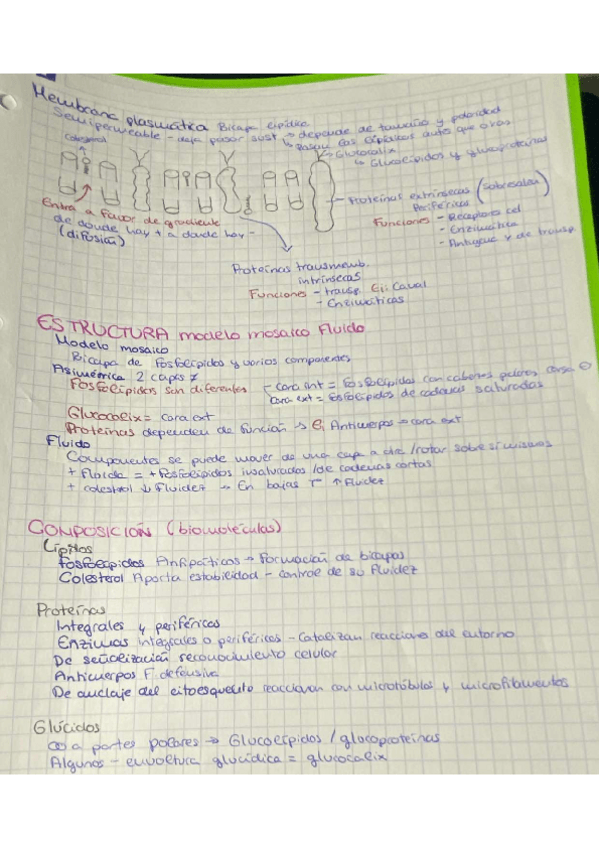 Membrana plasmática Bicapa lipídica
Semipermeable - deja pasar sust. → depende de tamaño y polaridad
↳ Pasan las lipídicas antes que otras
Colesterol
Glucocalix
↳ Glucolípidos y glucoproteínas
Proteínas extrínsecas (sobresalen)
Periféricas
Funciones - Receptora cel
- Enzimática
- Antigénica y de transp.
Entra a favor de gradiente
de donde hay + a donde hay -
(difusión)
Proteínas transmemb.
intrínsecas
Funciones - transp. Ej: Canal
- Enzimáticas
ESTRUCTURA modelo mosaico Fluido
Modelo mosaico
Bicapa de fosfolípidos y varios componentes
Asimétrica 2 capas ≠
Fosfolípidos son diferentes
Cara int = Fosfolípidos con cabezas polares carga ⊖
Cara ext = Fosfolípidos de cadenas saturadas
Glucocalix = cara ext
Proteínas dependen de función → Ej Anticuerpos → cara ext
Fluido
Componentes se puede mover de una capa a otra /rotar sobre sí mismos
+ Fluida = + fosfolípidos insaturados /de cadenas cortas
+ colestrol ↓ Fluidez → En bajas Tª ↑ Fluidez
COMPOSICIÓN (biomoléculas)
Lípidos
Fosfolípidos Anfipáticos → Formación de bicapas
Colesterol Aporta estabilidad - controle de su fluidez
Proteínas
Integrales y periféricas
Enzimas integrales o periféricas - Catalizan reacciones del entorno
De señalización reconocimiento celular
Anticuerpos F. defensiva
De anclaje del citoesqueleto reaccionan con microtúbulos y microfilamentos
Glúcidos
∞ a partes polares → Glucolípidos / glucoproteínas
Algunos - envoltura glucídica = glucocalix